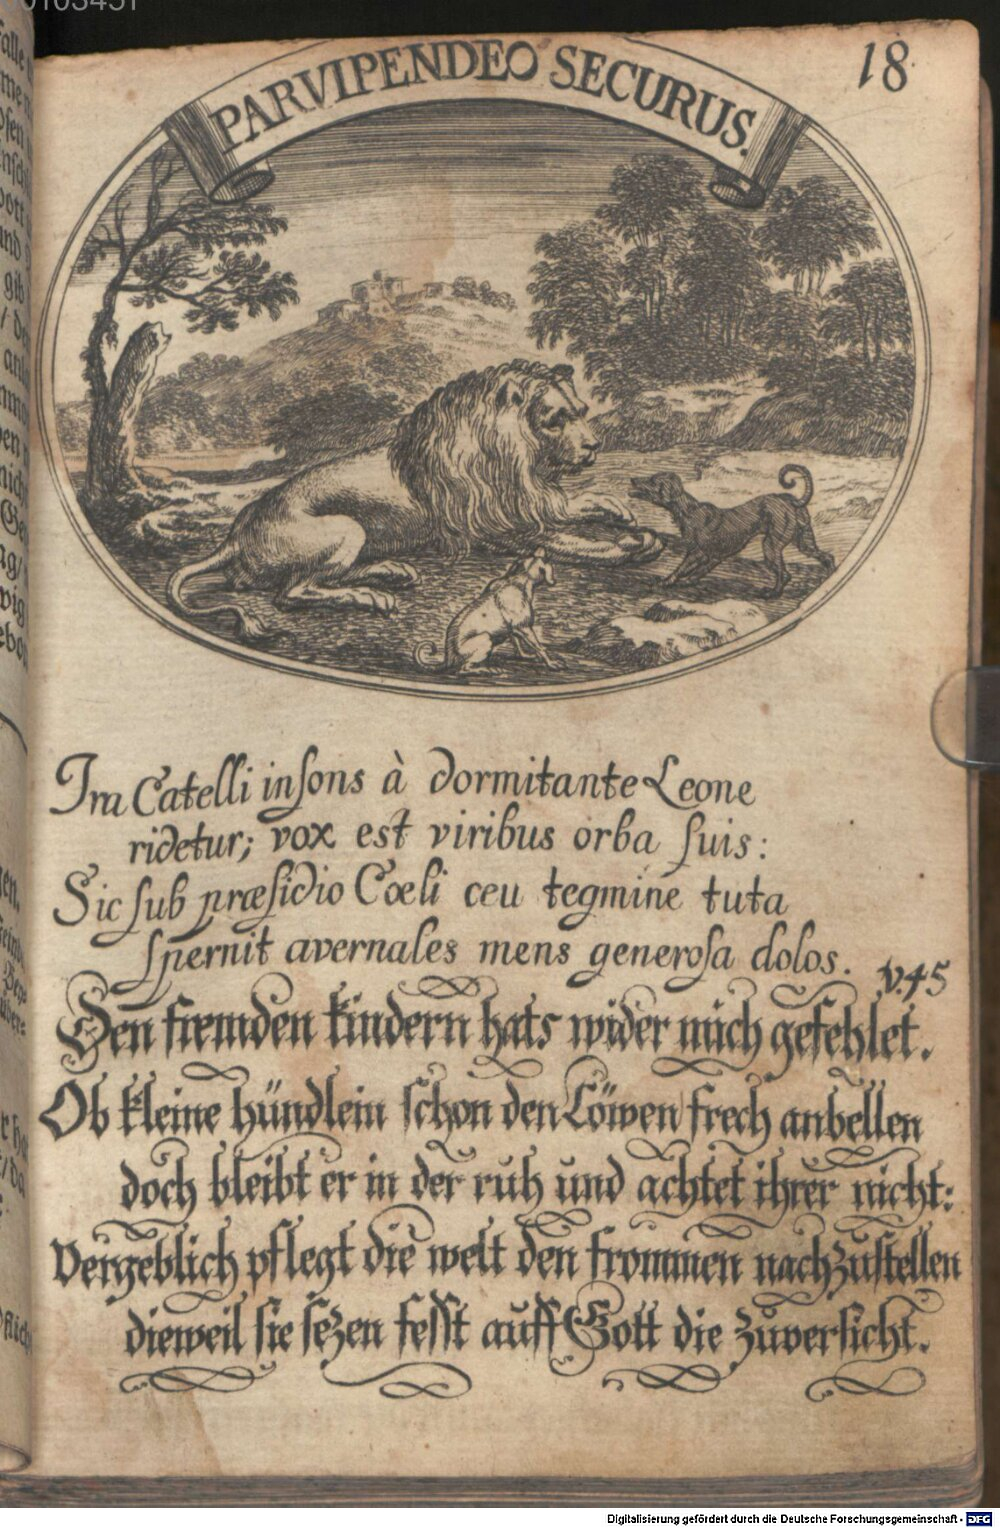 18
PARVIPENDEO SECURUS.
Ira Catelli insons à dormitante Leone
ridetur; vox est viribus orba suis:
Sic sub præsidio Cœli ceu tegmine tuta
spernit avernales mens generosa dolos.
v.45
Den fremden kindern hats wider mich gefehlet.
Ob kleine hündlein schon den Löwen frech anbellen
doch bleibt er in der ruh und achtet ihrer nicht:
Vergeblich pflegt die welt den frommen nachzustellen
dieweil sie sezen fesst auff Gott die zuversicht.
Digitalisierung gefördert durch die Deutsche Forschungsgemeinschaft - DFG